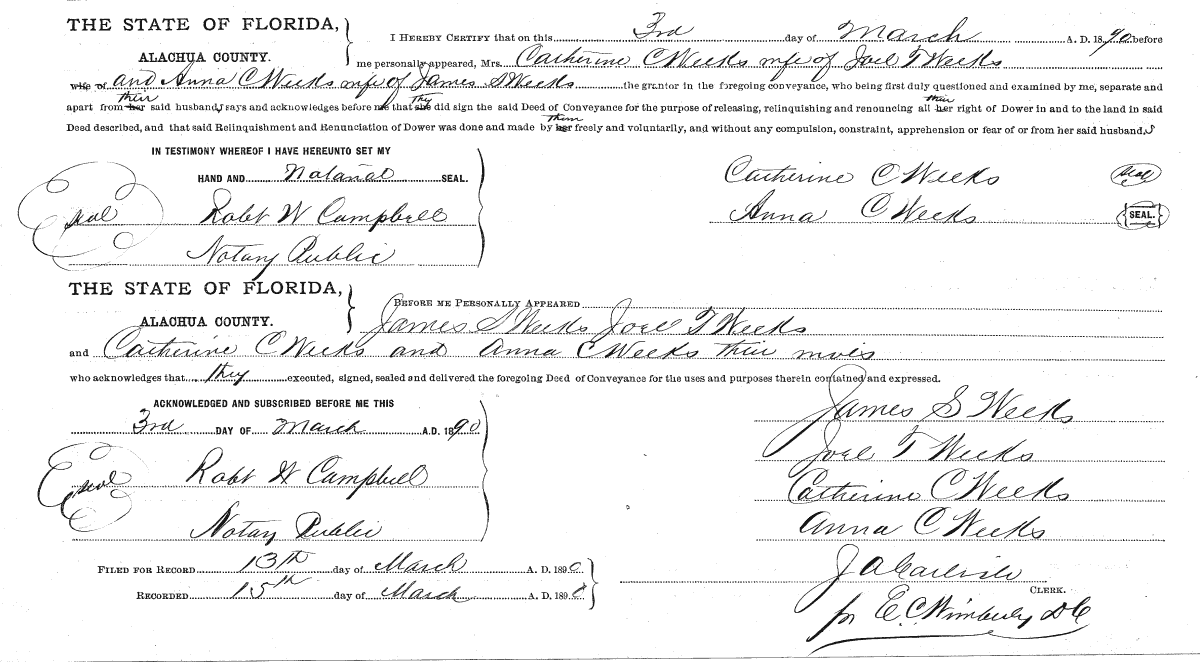 THE STATE OF FLORIDA,
ALACHUA COUNTY.
I HEREBY CERTIFY that on this 3rd day of March A. D. 1890 before
me personally appeared, Mrs. Catherine C Weeks wife of Joel T Weeks
wife of and Anna C Weeks wife of James S Weeks the grantor in the foregoing conveyance, who being first duly questioned and examined by me, separate and
their they their
apart from her said husbands, says and acknowledges before me that she did sign the said Deed of Conveyance for the purpose of releasing, relinquishing and renouncing all her right of Dower in and to the land in said
them
Deed described, and that said Relinquishment and Renunciation of Dower was done and made by her freely and voluntarily, and without any compulsion, constraint, apprehension or fear of or from her said husbands
IN TESTIMONY WHEREOF I HAVE HEREUNTO SET MY
HAND AND Notarial SEAL.
Seal Robt W Campbell
Notary Public
Catherine C Weeks Seal
Anna C Weeks SEAL.
THE STATE OF FLORIDA,
ALACHUA COUNTY.
BEFORE ME PERSONALLY APPEARED
James S Weeks Joel T Weeks
and Catherine C Weeks and Anna C Weeks their wives
who acknowledges that they executed, signed, sealed and delivered the foregoing Deed of Conveyance for the uses and purposes therein contained and expressed.
ACKNOWLEDGED AND SUBSCRIBED BEFORE ME THIS
3rd DAY OF March A.D. 1890
Seal Robt W Campbell
Notary Public
James S Weeks
Joel T Weeks
Catherine C Weeks
Anna C Weeks
FILED FOR RECORD 13th day of March A. D. 1890
RECORDED 15th day of March A. D. 1890
J A Carlisle
CLERK.
pr E. C. Wimberly D C